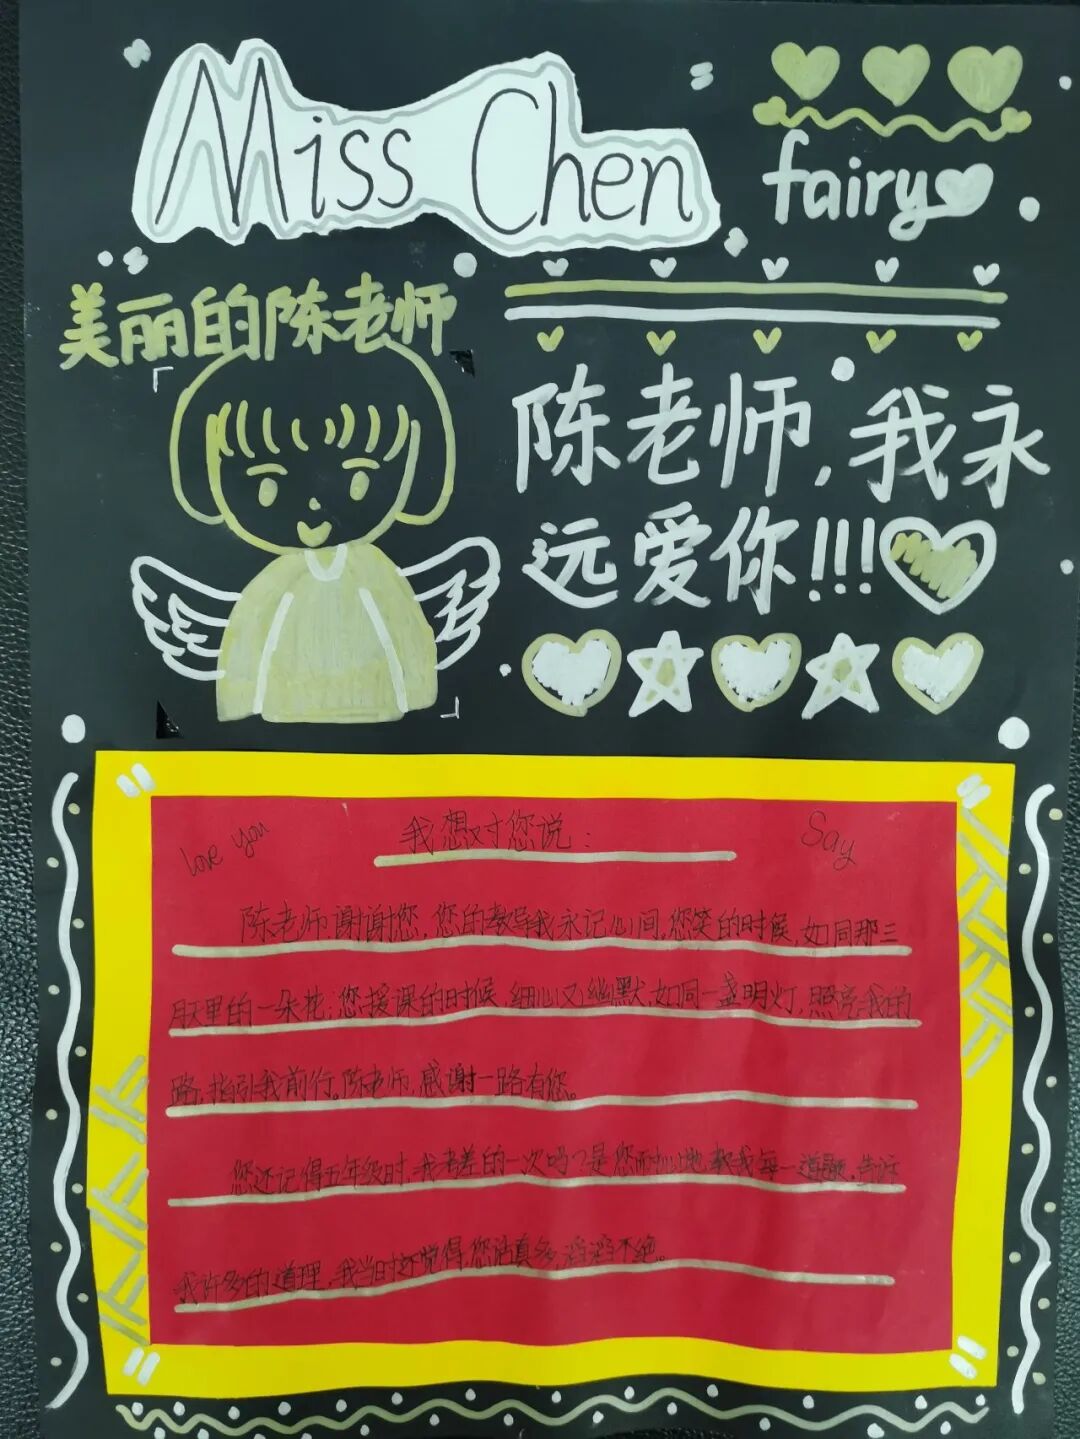 Miss Chen
fairy
美丽的陈老师
陈老师,我永
远爱你!!!
love you
我想对您说:
Say
陈老师谢谢您,您的教导我永记心间,您笑的时候,如同那三
月里的一朵花;您授课的时候,细心又幽默,如同一盏明灯,照亮我的
路,指引我前行。陈老师,感谢一路有您。
您还记得五年级时,我考差的一次吗?是您耐心地教我每一道题,告诉
我许多的道理,我当时还觉得,您话真多,滔滔不绝。